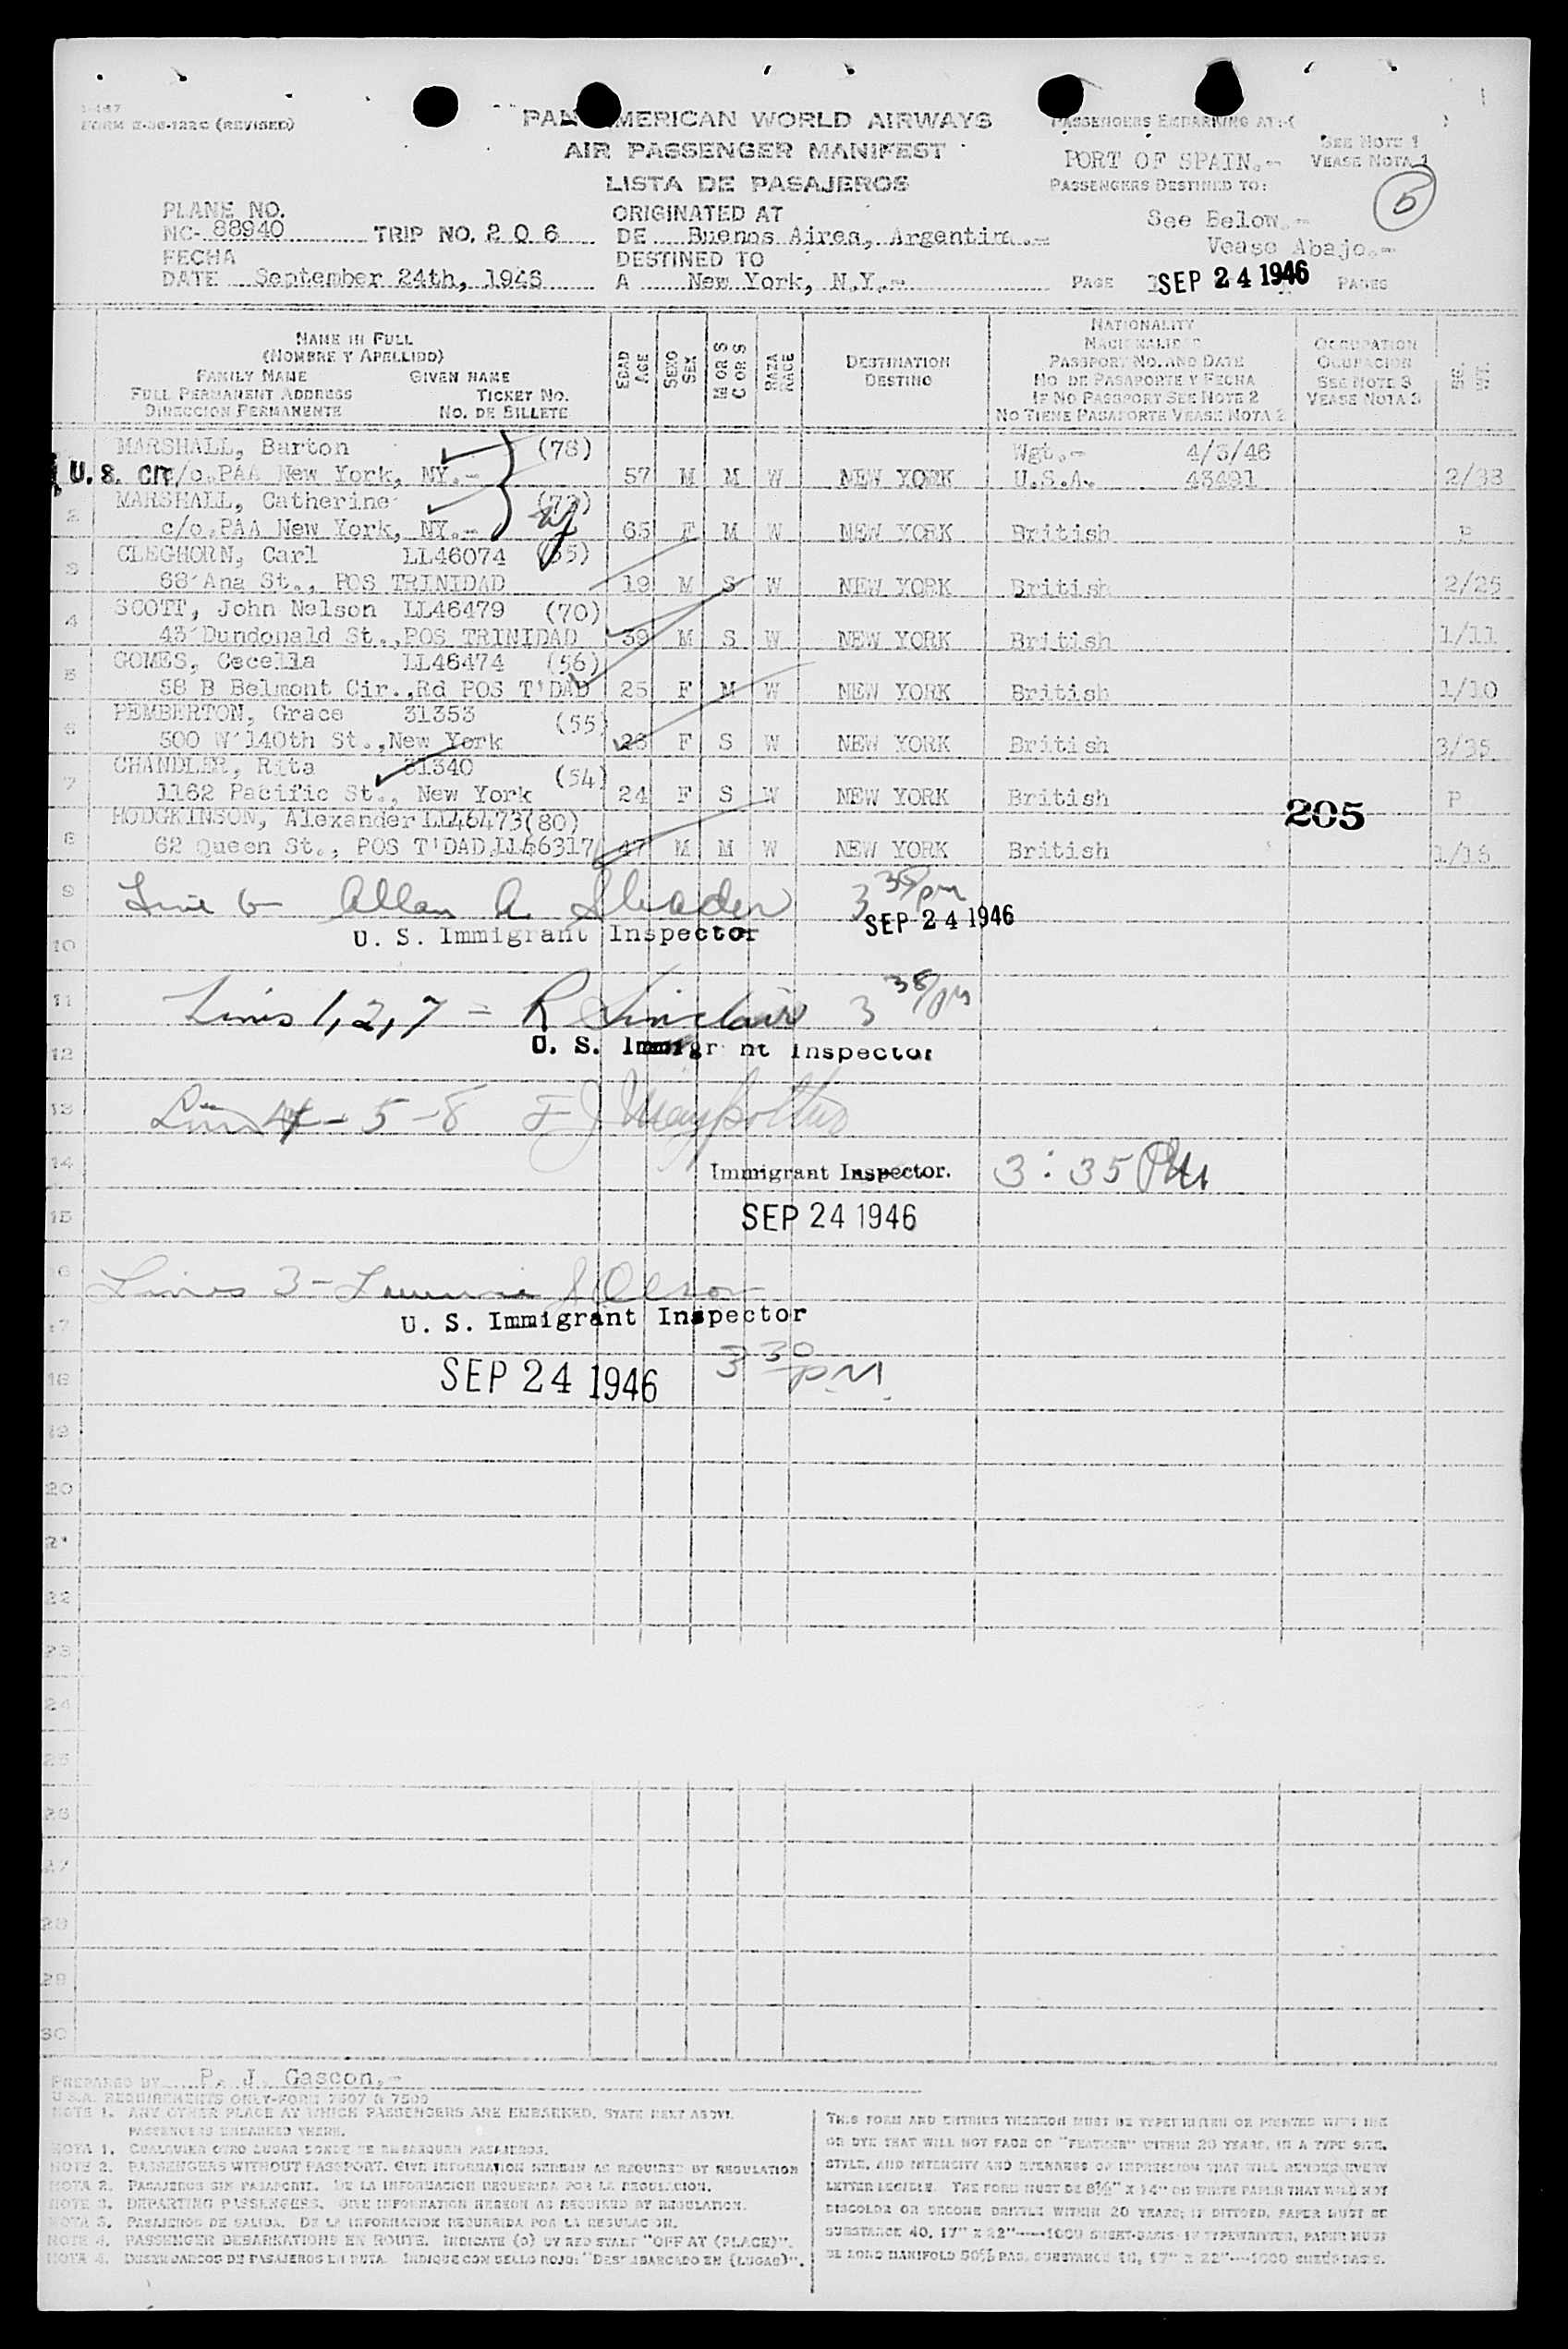 FORM (REVISED)
PAN AMERICAN WORLD AIRWAYS
AIR PASSENGER MANIFEST
LISTA DE PASAJEROS
PASSENGERS EMBARKING AT:
SEE NOTE 1
PORT OF SPAIN.-
VEASE NOTA 1
PASSENGERS DESTINED TO:
PLANE NO.
NC- 88940
TRIP NO. 2 0 6
ORIGINATED AT
DE Buenos Aires, Argentina.-
See Below.-
Vease Abajo.-
FECHA
DATE September 24th, 1946
DESTINED TO
A New York, N.Y.-
PAGE SEP 24 1946 PAGES
NAME IN FULL
(NOMBRE Y APELLIDO)
FAMILY NAME GIVEN NAME
FULL PERMANENT ADDRESS TICKET NO.
DIRECCION PERMANENTE NO. DE BILLETE
EDAD AGE
SEXO SEX
M OR S C OR S
RAZA RACE
DESTINATION
DESTINO
NATIONALITY
NACIONALIDAD
PASSPORT NO. AND DATE
NO. DE PASAPORTE Y FECHA
IF NO PASSPORT SEE NOTE 2
NO TIENE PASAPORTE VEASE NOTA 2
OCCUPATION
OCUPACION
SEE NOTE 3
VEASE NOTA 3
MARSHALL, Barton (78) Wgt.- 4/3/46
U. S. CIT c/o.PAA New York, NY.- 57 M M W NEW YORK U.S.A. 43491 2/38
MARSHALL, Catherine
2 c/o.PAA New York, NY.- 65 F M W NEW YORK British P
CLEGHORN, Carl LL46074
3 68 Ana St., POS TRINIDAD 19 M S W NEW YORK British 2/25
SCOTT, John Nelson LL46479 (70)
4 43 Dundonald St.,POS TRINIDAD 39 M S W NEW YORK British 1/11
GOMES, Cecella LL46474 (56)
5 58 B Belmont Cir.,Rd POS T'DAD 25 F M W NEW YORK British 1/10
PEMBERTON, Grace 31353 (55)
6 500 W 140th St.,New York F S W NEW YORK British 3/35
CHANDLER, Rita 31340 (54)
7 1162 Pacific St., New York 24 F S W NEW YORK British P
205
HODGKINSON, Alexander LL46473(80)
8 62 Queen St., POS T'DAD,LL46317 47 M M W NEW YORK British 1/16
9 Line 6- Allan A. 3 35/pm
SEP 24 1946
10 U. S. Immigrant Inspector
11 Lines 1, 2, 7 - R Sinclair 3 38/pm
12 U. S. Immigrant Inspector
13 Line 4 - 5 - 8
14 Immigrant Inspector. 3:35 PM
15 SEP 24 1946
16 Lines 3 -
17 U. S. Immigrant Inspector
18 SEP 24 1946 3 30 PM.
19
20
21
22
23
24
25
26
27
28
29
30
PREPARED BY P. J. Gascon.-
U.S.A. REQUIREMENTS ONLY-FORM 7507 & 7509
NOTE 1. ANY OTHER PLACE AT WHICH PASSENGERS ARE EMBARKED, STATE NEXT ABOVE
PASSENGERS EMBARKED THERE.
NOTA 1. CUALQUIER OTRO LUGAR DONDE SE EMBARQUEN PASAJEROS.
NOTE 2. PASSENGERS WITHOUT PASSPORT. GIVE INFORMATION HEREON AS REQUIRED BY REGULATION
NOTA 2. PASAJEROS SIN PASAPORTE. DE LA INFORMACION REQUERIDA POR LA REGULACION.
NOTE 3. DEPARTING PASSENGERS. GIVE INFORMATION HEREON AS REQUIRED BY REGULATION.
NOTA 3. PASAJEROS DE SALIDA. DE LA INFORMACION REQUERIDA POR LA REGULACION.
NOTE 4. PASSENGER DEBARKATIONS EN ROUTE. INDICATE (D) BY RED STAMP "OFF AT (PLACE)".
NOTA 4. DESEMBARCOS DE PASAJEROS EN RUTA. INDIQUE CON SELLO ROJO: "DESEMBARCADO EN (LUGAR)".
THIS FORM AND ENTRIES THEREON MUST BE TYPEWRITTEN OR PRINTED WITH INK
OR DYE THAT WILL NOT FADE OR "FEATHER" WITHIN 20 YEARS, IN A TYPE SIZE,
STYLE, AND INTENSITY AND EVENNESS OF IMPRESSION THAT WILL RENDER EVERY
LETTER LEGIBLE. THE FORM MUST BE 8½" X 14" ON WHITE PAPER THAT WILL NOT
DISCOLOR OR BECOME BRITTLE WITHIN 20 YEARS; IF DITTOED, PAPER MUST BE
SUBSTANCE 40, 17" X 22"----1000 SHEET-BASIS; IF TYPEWRITTEN, PAPER MUST
BE BOND MANIFOLD 50% RAG, SUBSTANCE 16, 17" X 22"----1000 SHEETS BASIS.